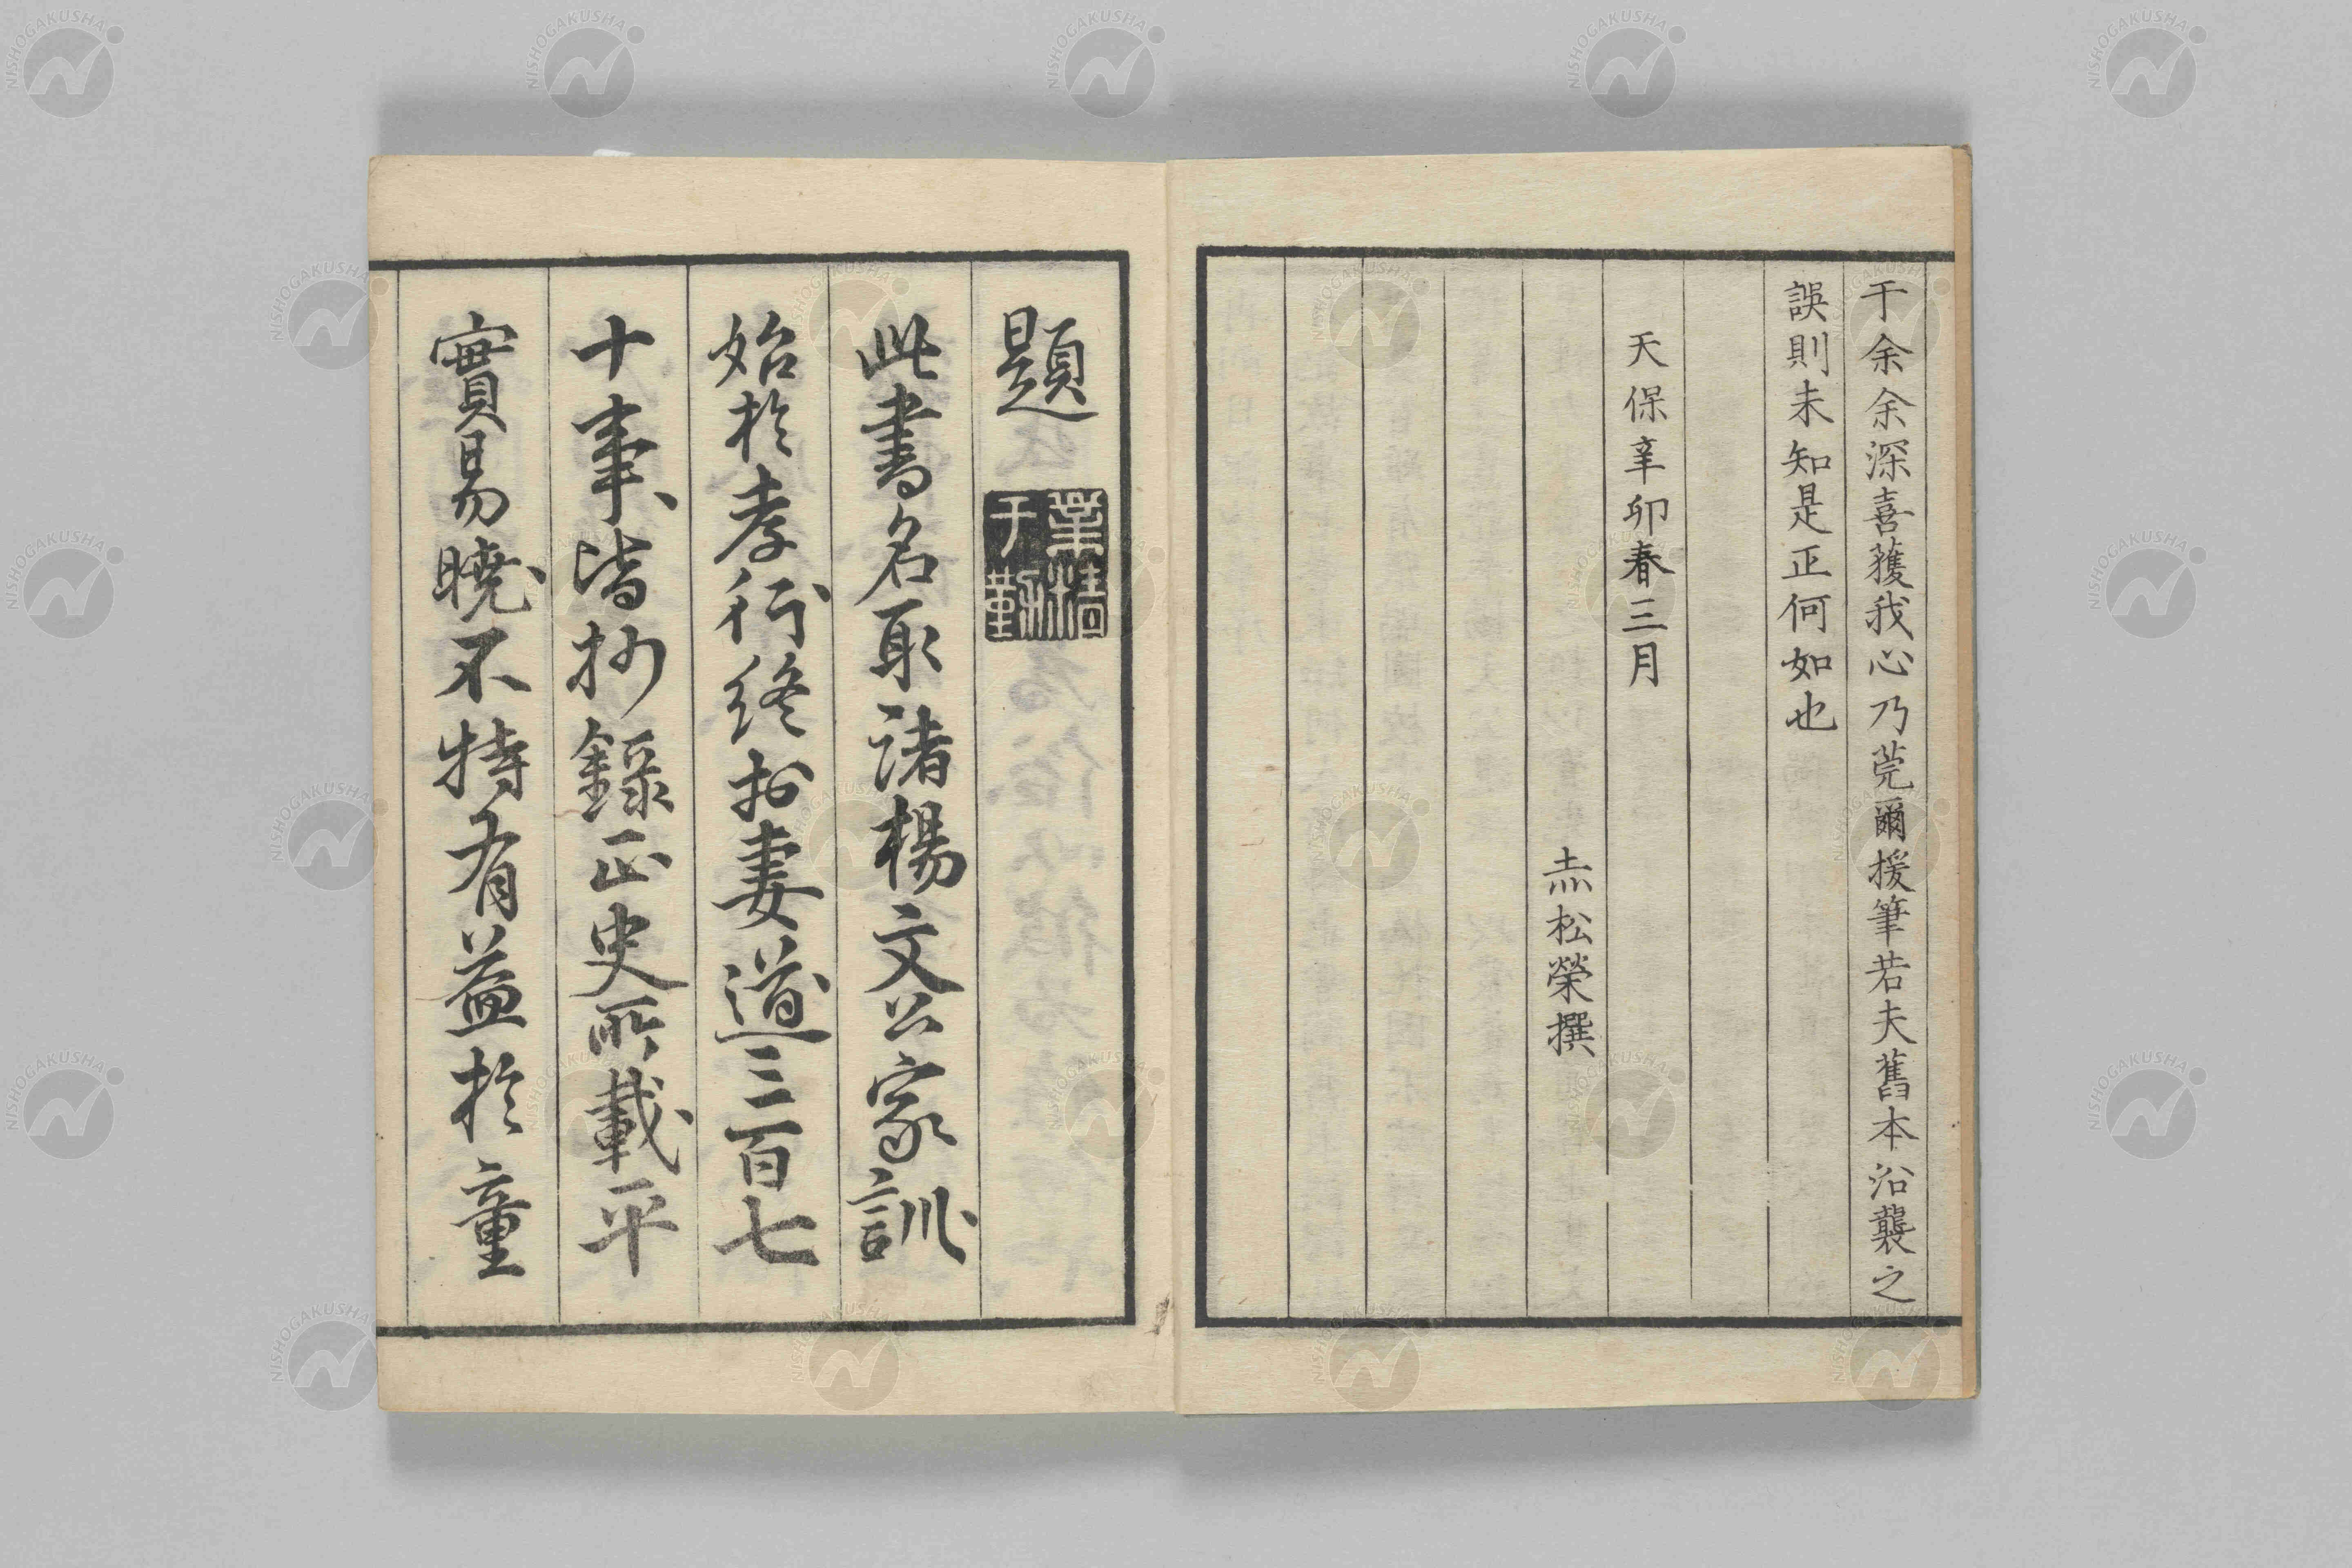 于余余深喜獲我心乃莞爾援筆若夫舊本沿襲之
誤則未知是正何如也
天保辛卯春三月
赤松榮撰
題
業精于勤
此書名取諸楊文公家訓
始於孝行終於妻道三百七
十事皆抄錄正史所載平
實易曉不特有益於童
NISHOGAKUSHA